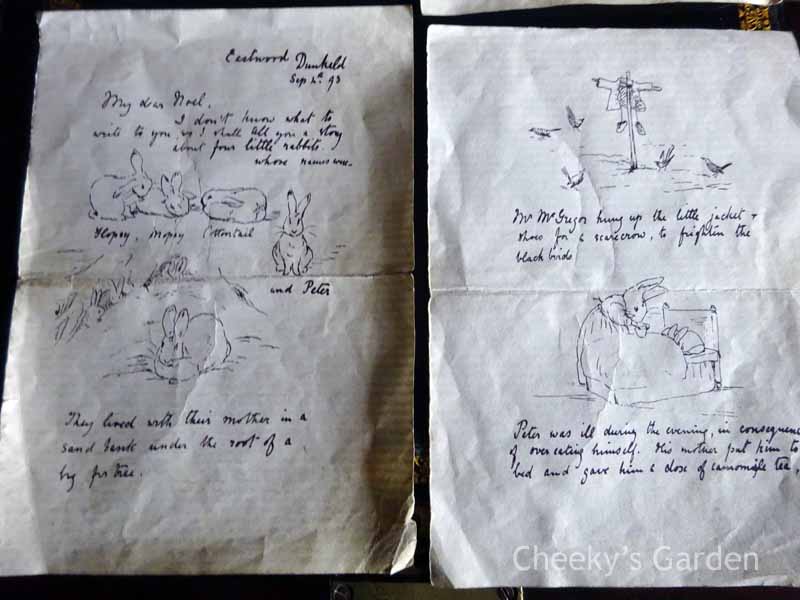 Eastwood Dunkeld
Sep 4th 93
My dear Noel,
I don't know what to
write to you, so I shall tell you a story
about four little rabbits.
whose names were
Flopsy, Mopsy Cottontail
and Peter
They lived with their mother in a
sand bank under the root of a
big fir tree.
Mr McGregor hung up the little jacket +
shoes for a scarecrow, to frighten the
black birds
Peter was ill during the evening, in consequence
of over eating himself. His mother put him to
bed and gave him a dose of camomile tea,
Cheeky's Garden